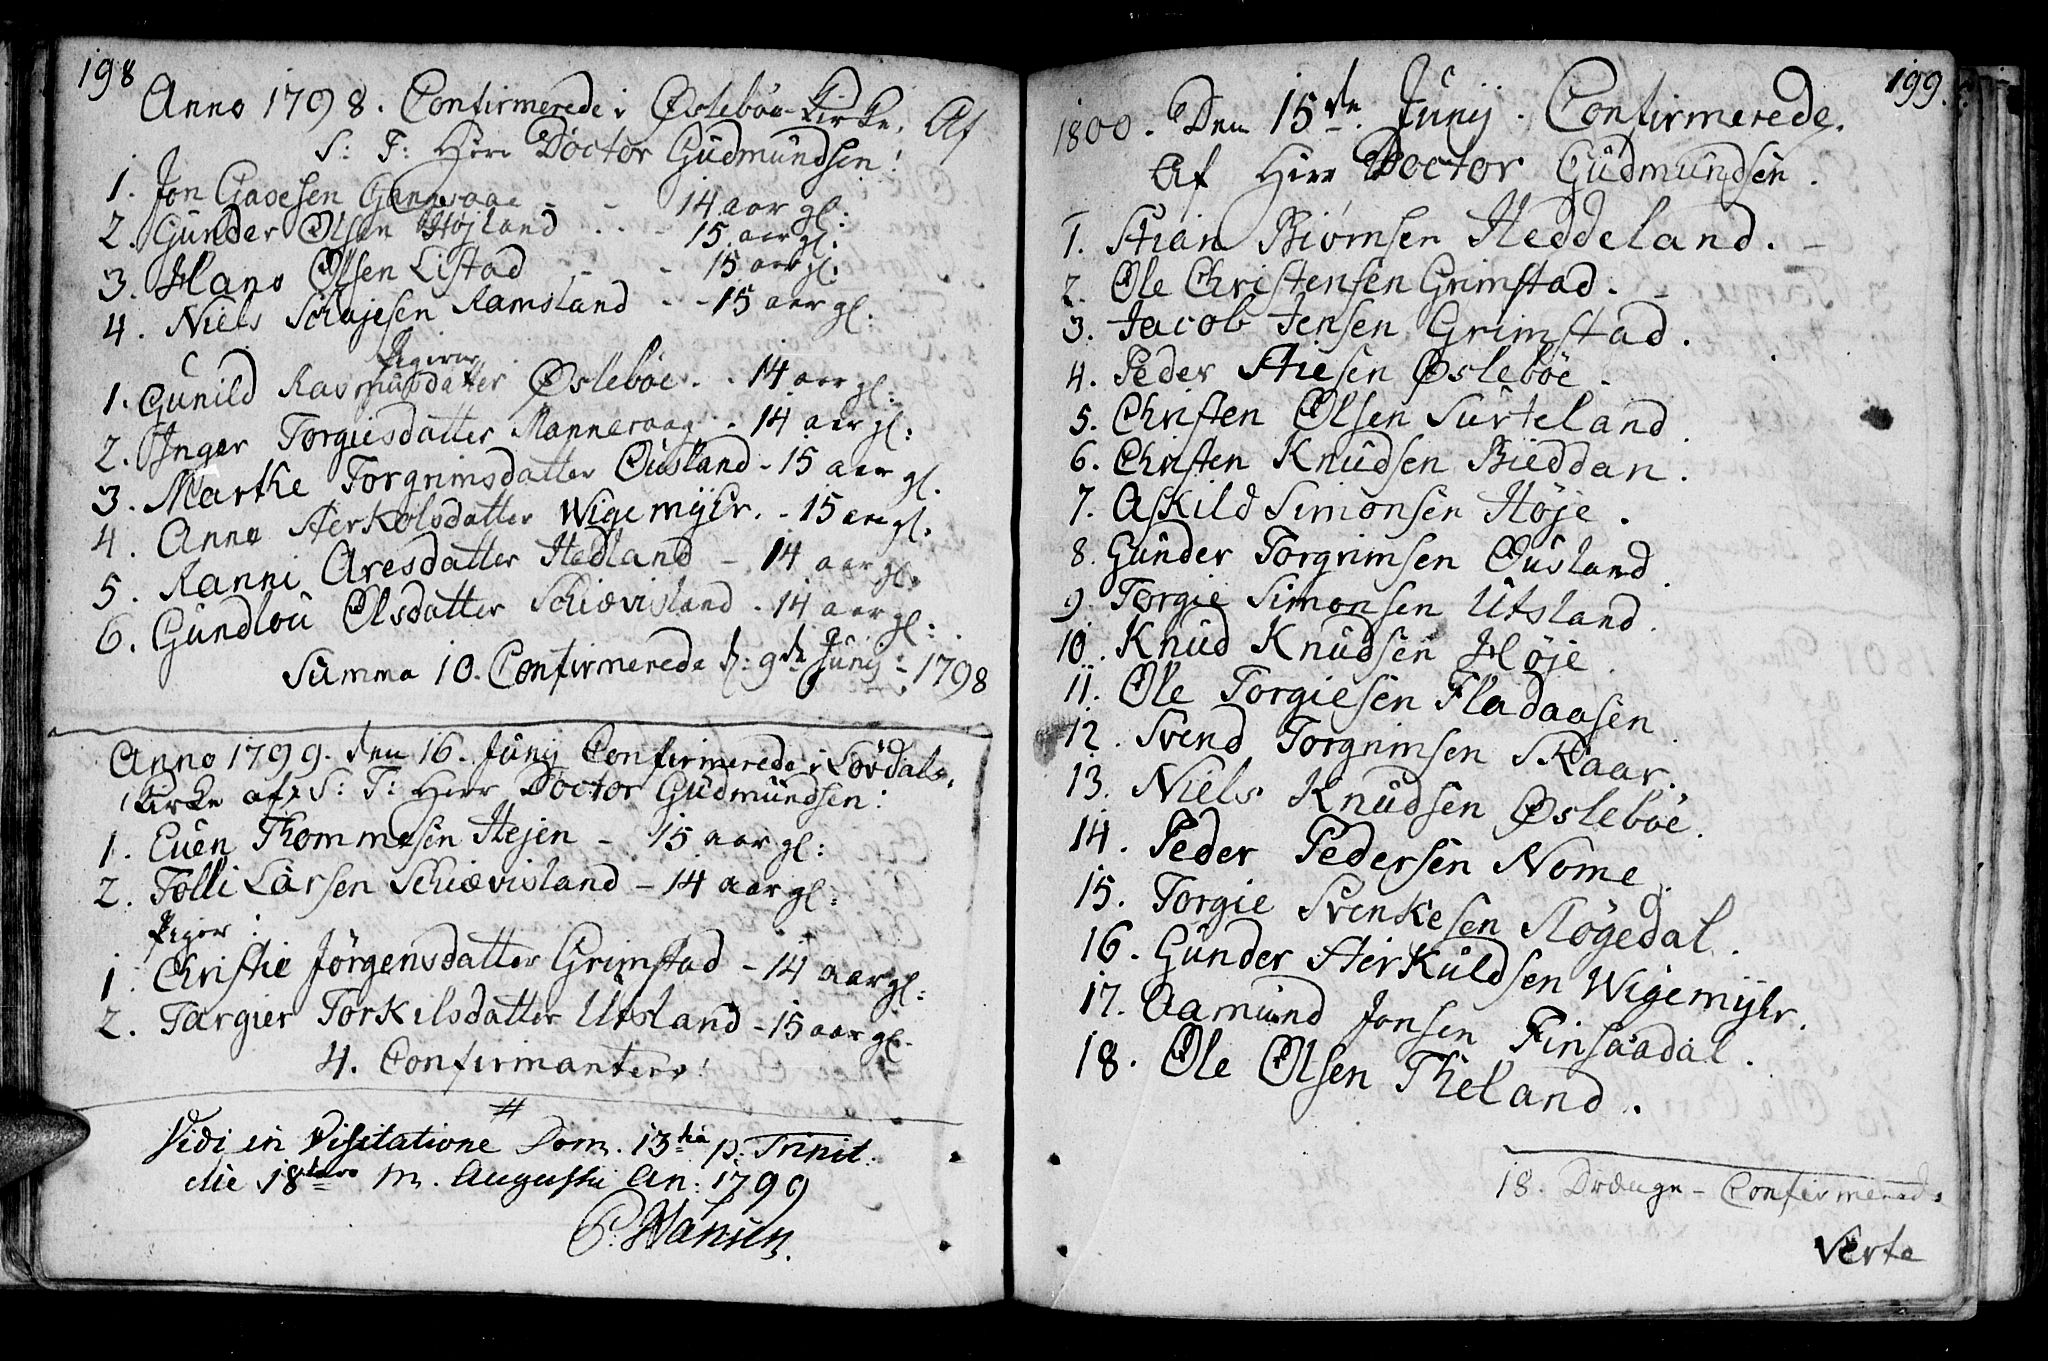 198
Anno 1798. Confirmerede i Øslebøe Kirke, Af
S: T: Herr Doctor Gudmundsen!
1. Jon Gavesen - - 14 aar gl:
2. Gunder Olsen Højland - - 15 aar gl:
3. Hans Olsen Listad - - 15 aar gl:
4. Niels Schajesen Ramsland - - 15 aar gl:
Pigerne
1. Gunild Rasmusdatter Øslebøe. - 14 aar gl:
2. Inger Torgiesdatter Manneraag - 14 aar gl:
3. Marthe Torgrimsdatter Ousland - 15 aar gl.
4. Anne Sterkolsdatter Wigemÿhr. - 15 aar gl:
5. Ranni Aresdatter Hedland - 14 aar gl.
6. Gundlou Olsdatter Schiævisland - 14 aar gl:
Summa 10. Confirmerede d: 9de Junij - 1798
Anno 1799. den 16. Junij Confirmerede i Løvdals
Kirke af S: T: Herr Doctor Gudmundsen:
1. Euen Thommesen Hejen - 15 aar gl:
2. Tolli Larsen Schiævisland - 14 aar gl:
Piger:
1 Christie Jørgensdatter Grimstad - 14 aar gl:
2. Targier Torkilsdatter Utsland - 15 aar gl.
4. Confirmanters!
#
Vidi in Visitatione Dom. 13tia p. Trinit:
die 18tavo M. Augusti An: 1799
P. Hansen.
199.
1800. Den 15de Junij. Confirmerede.
Af Herr Doctor Gudmundsen.
1. Stian Biørnsen Heddeland. -
2. Ole Christensen Grimstad. -
3. Jacob Jensen Grimstad.
4. Peder Stiesen Øslebøe.
5. Christen Olsen Surteland.
6. Christen Knudsen Bieddan.
7. Askild Simonsen Høje.
8. Gunder Torgrimsen Ousland.
9. Torgie Simonsen Utsland.
10. Knud Knudsen Høje.
11. Ole Torgiesen Fladaasen.
12. Svend Torgrimsen Skaar.
13. Niels Knudsen Øslebøe.
14. Peder Pedersen Nome.
15. Torgie Svenkesen Støgedal.
16. Gunder Sterkuldsen Wigemÿhr.
17. Aamund Jonsen Finsaadal.
18. Ole Olsen Theland.
18. Drænge - Confirmered:
Verte